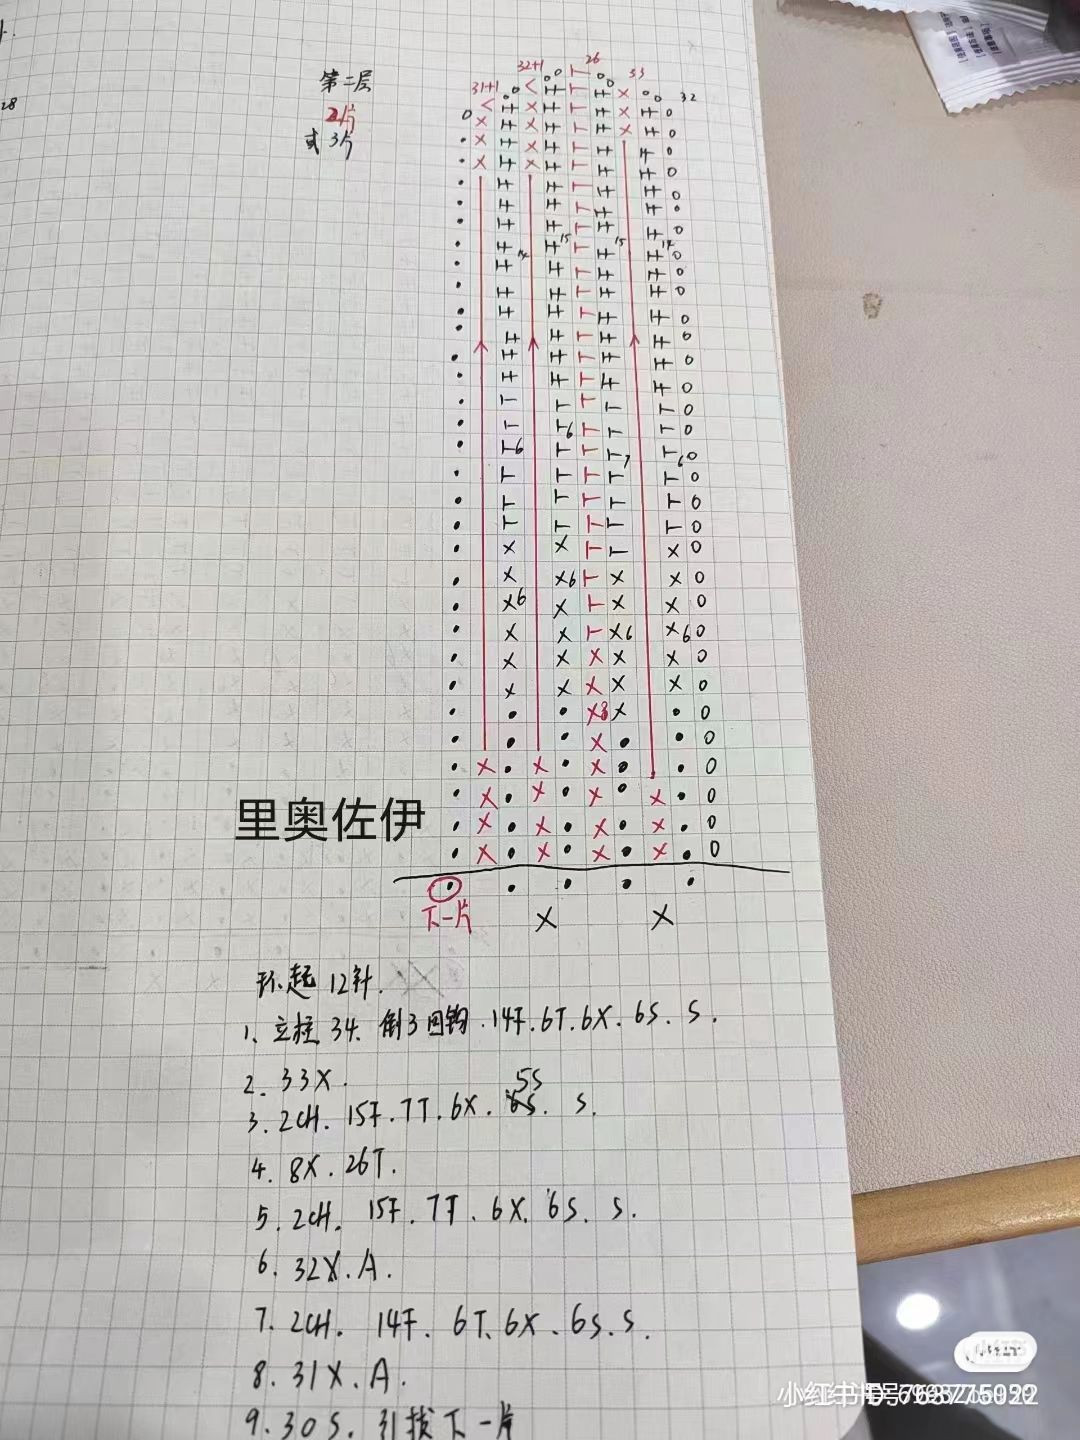 第二层
2片
或3片
28
31+1
32+1
26
33
32
14
15
15
14
6
6
7
6
6
6
6
6
8
里奥佐伊
下一片
环起12针.
1、立柱34.倒3回钩.14F.6T.6X.6S.S.
2.33X.
5S
3.2CH.15F.7T.6X.6S.S.
4.8X.26T.
5.2CH.15F.7T.6X.6S.S.
6.32X.A.
7.2CH.14F.6T.6X.6S.S.
8.31X.A.
9.30S.引拔下一片